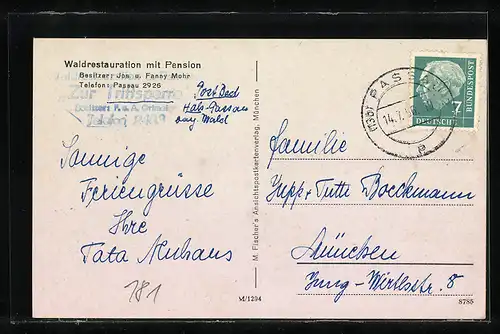 Waldrestauration mit Pension
Besitzer: Jos. u. Fanny Mohr
Telefon: Passau 2926
Besitzer: F. u. A.
Telefon
Post
Hals-Passau
bay. Wald
Sonnige
Feriengrüsse
Ihre
Tata Neuhaus
181
M/1294
M. Fischer's Ansichtspostkartenverlag, München
PASSAU
14.7.
e
7
DEUTSCHE
BUNDESPOST
Familie
Jupp + Tutti Boeckmann
München
Jung-Wirthstr. 8
8785